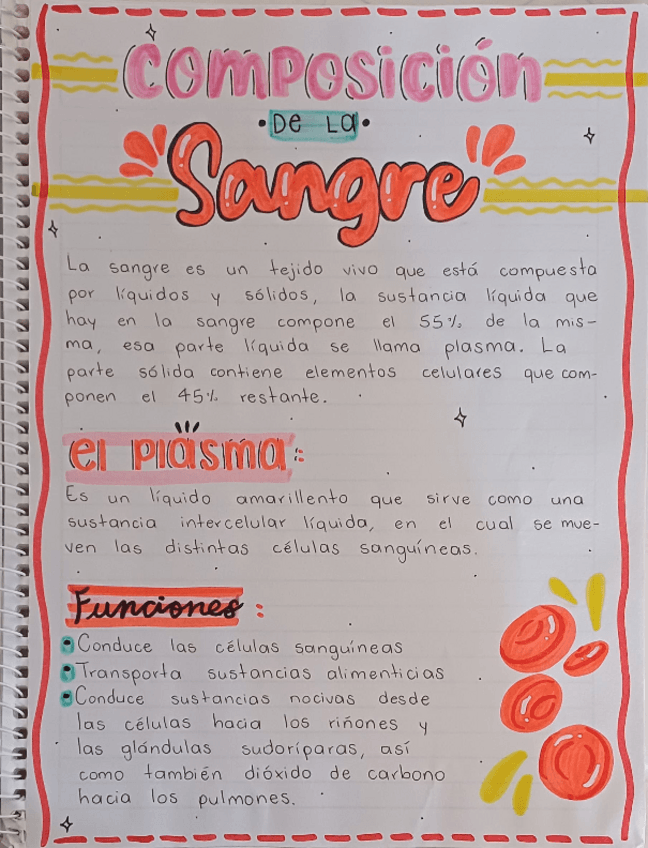 Composición
De La
Sangre
La sangre es un tejido vivo que está compuesta
por líquidos y sólidos, la sustancia líquida que
hay en la sangre compone el 55% de la mis-
ma, esa parte líquida se llama plasma. La
parte sólida contiene elementos celulares que com-
ponen el 45% restante.
el plasma:
Es un líquido amarillento que sirve como una
sustancia intercelular líquida, en el cual se mue-
ven las distintas células sanguíneas.
Funciones:
Conduce las células sanguíneas
Transporta sustancias alimenticias
Conduce sustancias nocivas desde
las células hacia los riñones y
las glándulas sudoríparas, así
como también dióxido de carbono
hacia los pulmones.